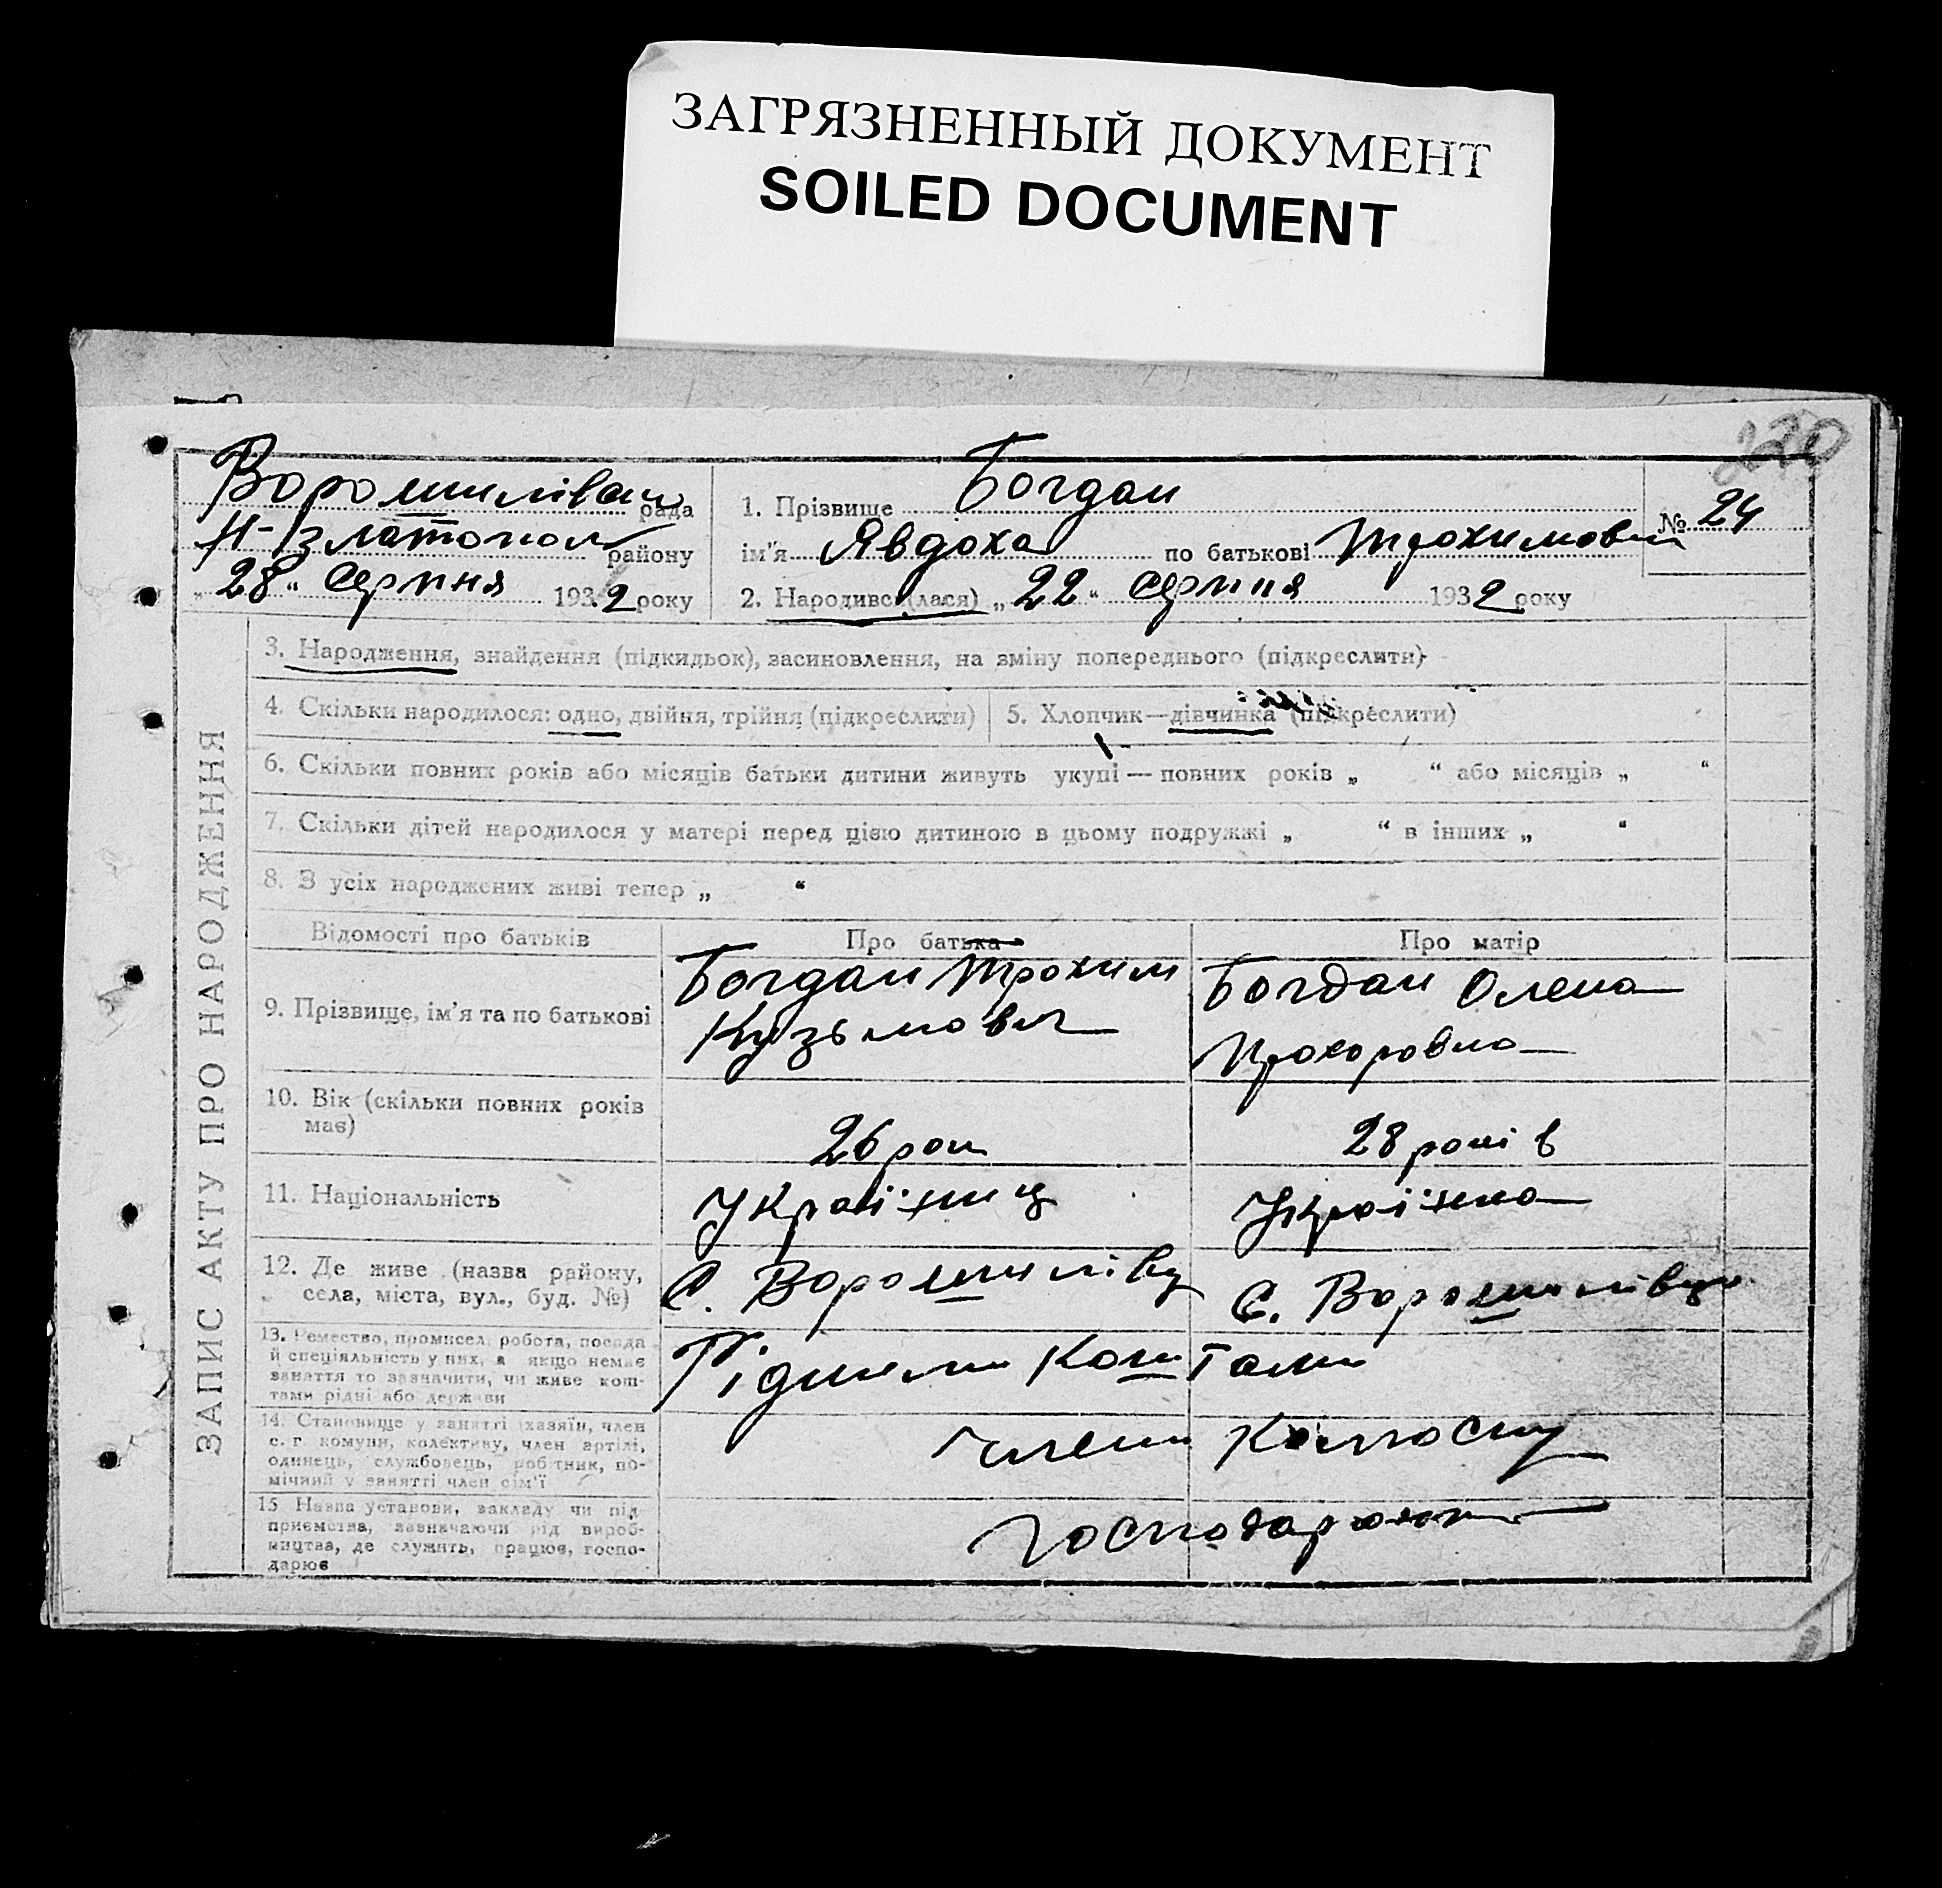 ЗАГРЯЗНЕННЫЙ ДОКУМЕНТ
SOILED DOCUMENT
220
ЗАПИС АКТУ ПРО НАРОДЖЕННЯ
рада
Н-Златопол району
„28“ серпня 1932 року
1. Прізвище Богдан
ім'я Явдоха по батькові Трохимовна
№ 24
2. Народився (лася) „22“ серпня 1932 року
3. Народження, знайдення (підкидьок), засиновлення, на зміну попереднього (підкреслити)
4. Скільки народилося: одно, двійня, трійня (підкреслити)
5. Хлопчик—дівчинка (підкреслити)
6. Скільки повних років або місяців батьки дитини живуть укупі — повних років „ “ або місяців „ “
7. Скільки дітей народилося у матері перед цією дитиною в цьому подружжі „ “ в інших „ “
8. З усіх народжених живі тепер „ “
Відомості про батьків
Про батька
Про матір
9. Прізвище, ім'я та по батькові
Богдан Трохим
Кузьмович
Богдан Олена
Прохоровна
10. Вік (скільки повних років
має)
26 рок
28 років
11. Національність
Українец
Українка
12. Де живе (назва району,
села, міста, вул., буд. №)
С. Ворошилівц
С. Ворошилівц
13. Ремество, промисел, робота, посада
й спеціяльність у них, а якщо немає
заняття то зазначити, чи живе кош-
тами рідні або держави
Рідними Коштами
14. Становище у занятті (хазяїн, член
с. г. комуни, колективу, член артілі,
одинець, службовець, робітник, по-
мічний у занятті член сім'ї
член Колгоспу
15. Назва установи, закладу чи під-
приємства, зазначаючи рід вироб-
ництва, де служить, працює, госпо-
дарює